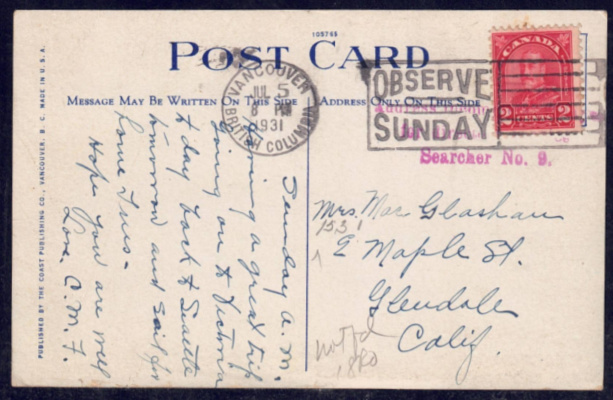 109765
POST CARD
MESSAGE MAY BE WRITTEN ON THIS SIDE
ADDRESS ONLY ON THIS SIDE
PUBLISHED BY THE COAST PUBLISHING CO., VANCOUVER, B. C. MADE IN U.S.A.
VANCOUVER
JUL 5
8 PM
1931
BRITISH COLUMBIA
OBSERVE
SUNDAY
CANADA
2 CENTS 2
Searcher No. 9.
Sunday a.m.
Having a great trip
going on to Victoria
to day back to Seattle
tomorrow and sail for
home Tues-
Hope you are well
Love, C. M. F.
Mrs. Mac Glashan
153
E Maple St.
Glendale
Calif.